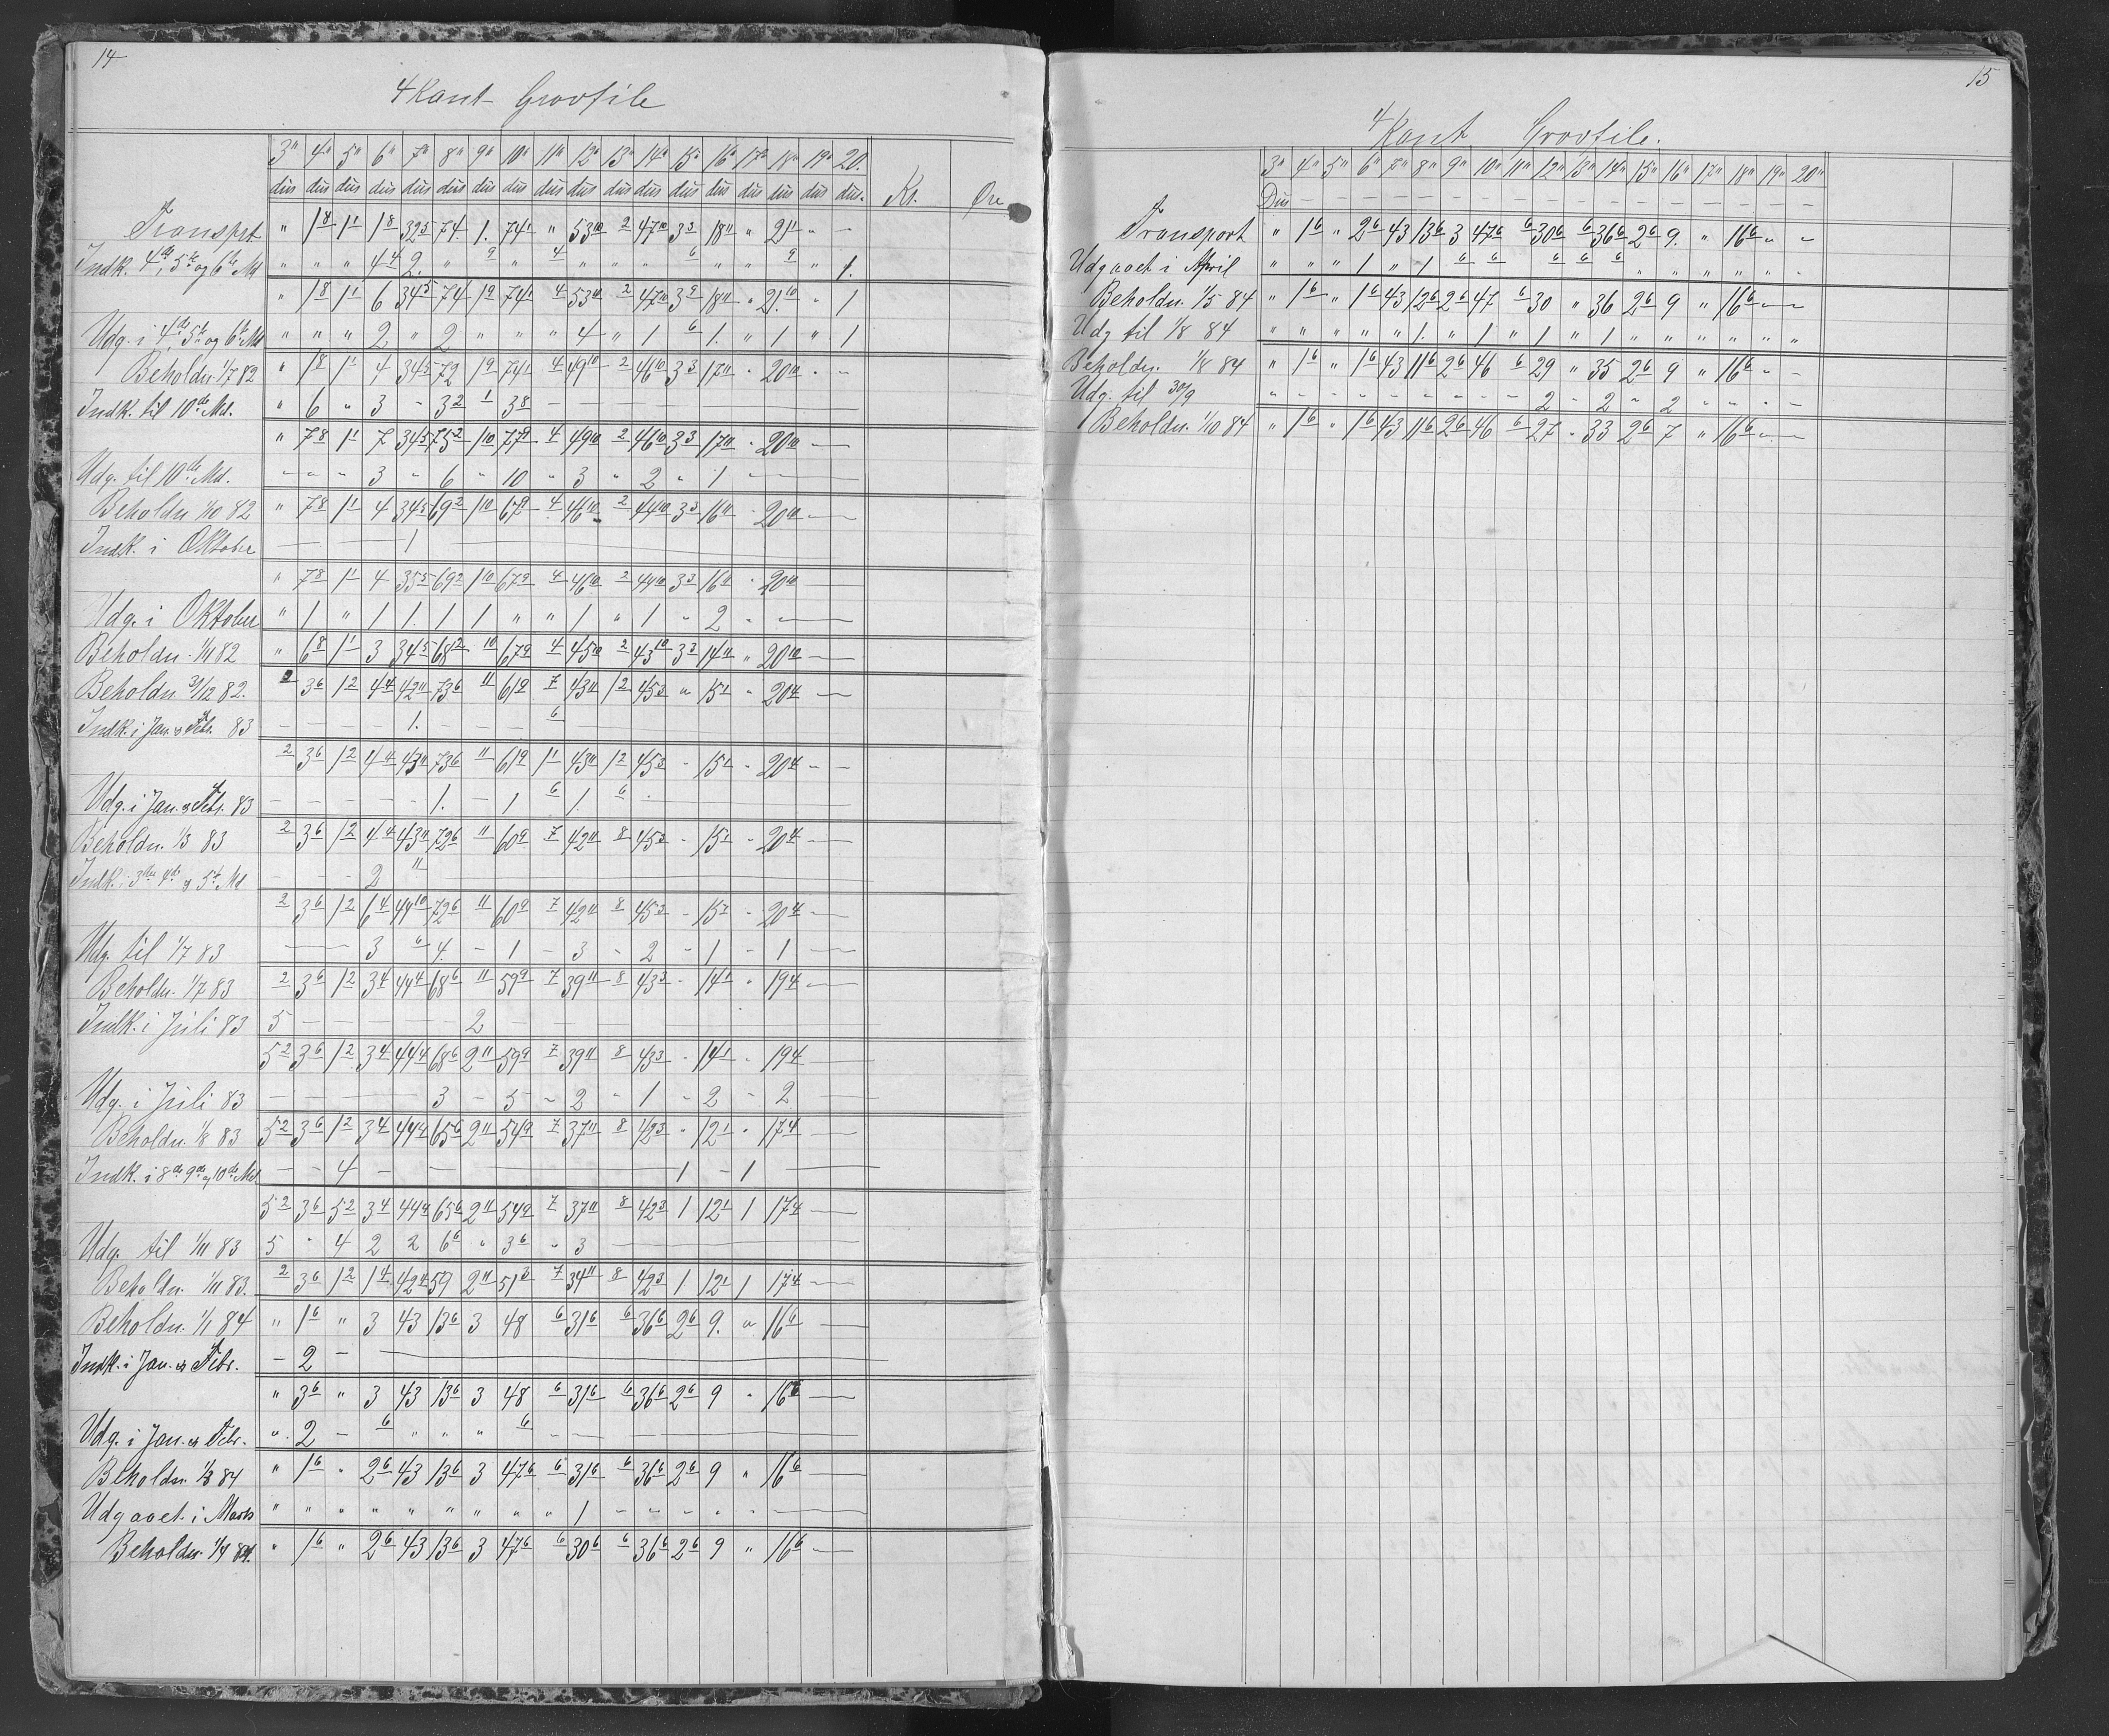 14
4 Kant Grovfile
3" 4" 5" 6" 7" 8" 9" 10" 11" 12" 13" 14" 15" 16" 17" 18" 19" 20.
dus dus dus dus dus dus dus dus dus dus dus dus dus dus dus dus dus dus. Kr. Øre
Transport " 1 8 1 1 1 8 32 5 74. 1. 74 1 " 53 10 2 47 10 3 3 18 11 " 21 1 " —
Indk. 4de, 5te og 6te Md " " " 4 4 2. " 9 " 4 " " " 6 " " 9 " 1.
" 1 8 1 1 6 34 5 74 1 9 74 1 4 53 10 2 47 10 3 9 18 11 " 21 10 " 1
Udg. i 4de 5te og 6te Md " " " 2 " 2 " " " 4 " 1 6 1. " 1 " 1
Beholdn. 1/7 82 " 1 8 1 1 4 34 5 72 1 9 74 1 4 49 10 2 46 10 3 3 17 11 " 20 10 " "
Indk. til 10de Md. " 6 " 3 " 3 2 1 3 8 —
" 7 8 1 1 7 34 5 75 2 1 10 77 9 4 49 10 2 46 10 3 3 17 11 " 20 10 —
Udg. til 10de Md. " " " 3 " 6 " 10 " 3 " 2 " 1 —
Beholdn 1/10 82 " 7 8 1 1 4 34 5 69 2 1 10 67 9 4 46 10 2 44 10 3 3 16 11 " 20 10 —
Indk. i Oktober — — 1 —
" 7 8 1 1 4 35 5 69 2 1 10 67 9 4 46 10 2 44 10 3 3 16 11 " 20 10 —
Udg. i Oktober " 1 " 1 1. 1 1 " " 1 " 1 " 2 " —
Beholdn. 1/11 82 " 6 8 1 1 3 34 5 68 2 10 67 9 4 45 10 2 43 10 3 3 14 11 " 20 10 —
Beholdn 31/12 82. 2 3 6 1 2 4 4 42 11 73 6 11 61 9 7 43 11 1 2 45 3 " 15 1 " 20 4 —
Indk. i Jan. og Febr. 83 — — — — 1. — — — 6
2 3 6 1 2 4 4 43 11 73 6 11 61 9 1 1 43 11 1 2 45 3 " 15 1 " 20 4 — —
Udg. i Jan. og Febr. 83 — — — — — 1. — 1 6 1. 6
Beholdn. 1/3 83 2 3 6 1 2 4 4 43 11 72 6 11 60 9 7 42 11 8 45 3 " 15 1 " 20 4 —
Indk. i 3die 4de og 5te Md — — — 2 11 —
2 3 6 1 2 6 4 44 10 72 6 11 60 9 7 42 11 8 45 3 " 15 1 " 20 4 —
Udg. til 1/7 83 — — 3 6 4. — 1 — 3 — 2 — 1 — 1 —
Beholdn. 1/7 83 2 3 6 1 2 3 4 44 4 68 6 11 59 9 7 39 11 8 43 3 " 14 1 " 19 4 —
Indk. i Juli 83 5 — — — — — 2 —
5 2 3 6 1 2 3 4 44 4 68 6 2 11 59 9 7 39 11 8 43 3 " 14 1 " 19 4 —
Udg. i Juli 83 — — — — — 3 — 5 — 2 " 1 — 2 — 2
Beholdn. 1/8 83 5 2 3 6 1 2 3 4 44 4 65 6 2 11 54 9 7 37 11 8 42 3 " 12 1 " 17 4 —
Indk. i 8de 9de og 10de Md — — 4 — — — 1 — 1 —
5 2 3 6 5 2 3 4 44 4 65 6 2 11 54 9 7 37 11 8 42 3 1 12 1 1 17 4 —
Udg. til 1/11 83 5 " 4 2 2 6 6 " 3 6 " 3 —
Beholdn. 1/11 83. 2 3 6 1 2 1 4 42 4 59 2 11 51 3 7 34 11 8 42 3 1 12 1 1 17 4 —
Beholdn. 1/1 84 " 1 6 " 3 43 13 6 3 48 6 31 6 6 36 6 2 6 9. " 16 6 —
Indk. i Jan. og Febr. — 2 — —
" 3 6 " 3 43 13 6 3 48 6 31 6 6 36 6 2 6 9 " 16 6 —
Udg. i Jan. og Febr. " 2 — 6 " " " 6 — — —
Beholdn. 1/3 84 " 1 6 " 2 6 43 13 6 3 47 6 6 31 6 6 36 6 2 6 9 " 16 6 —
Udgaaet i Marts " " " " " " " " " 1 — — — — — —
Beholdn. 1/4 84. " 1 6 " 2 6 43 13 6 3 47 6 6 30 6 6 36 6 2 6 9 " 16 6 —
15
4 Kant Grovfile.
3" 4" 5" 6" 7" 8" 9" 10" 11" 12" 13" 14" 15" 16" 17" 18" 19" 20"
Dus — — — — — — — — — — — — — — — — —
Transport " 1 6 " 2 6 43 13 6 3 47 6 6 30 6 6 36 6 2 6 9. " 16 6 " "
Udgaaet i April " " " 1 " 1 6 6 6 6 6 " " " " " "
Beholdn. 1/5 84 " 1 6 " 1 6 43 12 6 2 6 47 6 30 " 36 2 6 9 " 16 6 — —
Udg til 1/8 84 " " " " " 1. " 1 " 1 " 1 " " " " " "
Beholdn. 1/8 84 " 1 6 " 1 6 43 11 6 2 6 46 6 29 " 35 2 6 9 " 16 6 " —
Udg. til 30/9 " " " " " " " " " 2 " 2 " 2 " " " —
Beholdn. 1/10 84 " 1 6 " 1 6 43 11 6 2 6 46 6 27 " 33 2 6 7 " 16 6 — —